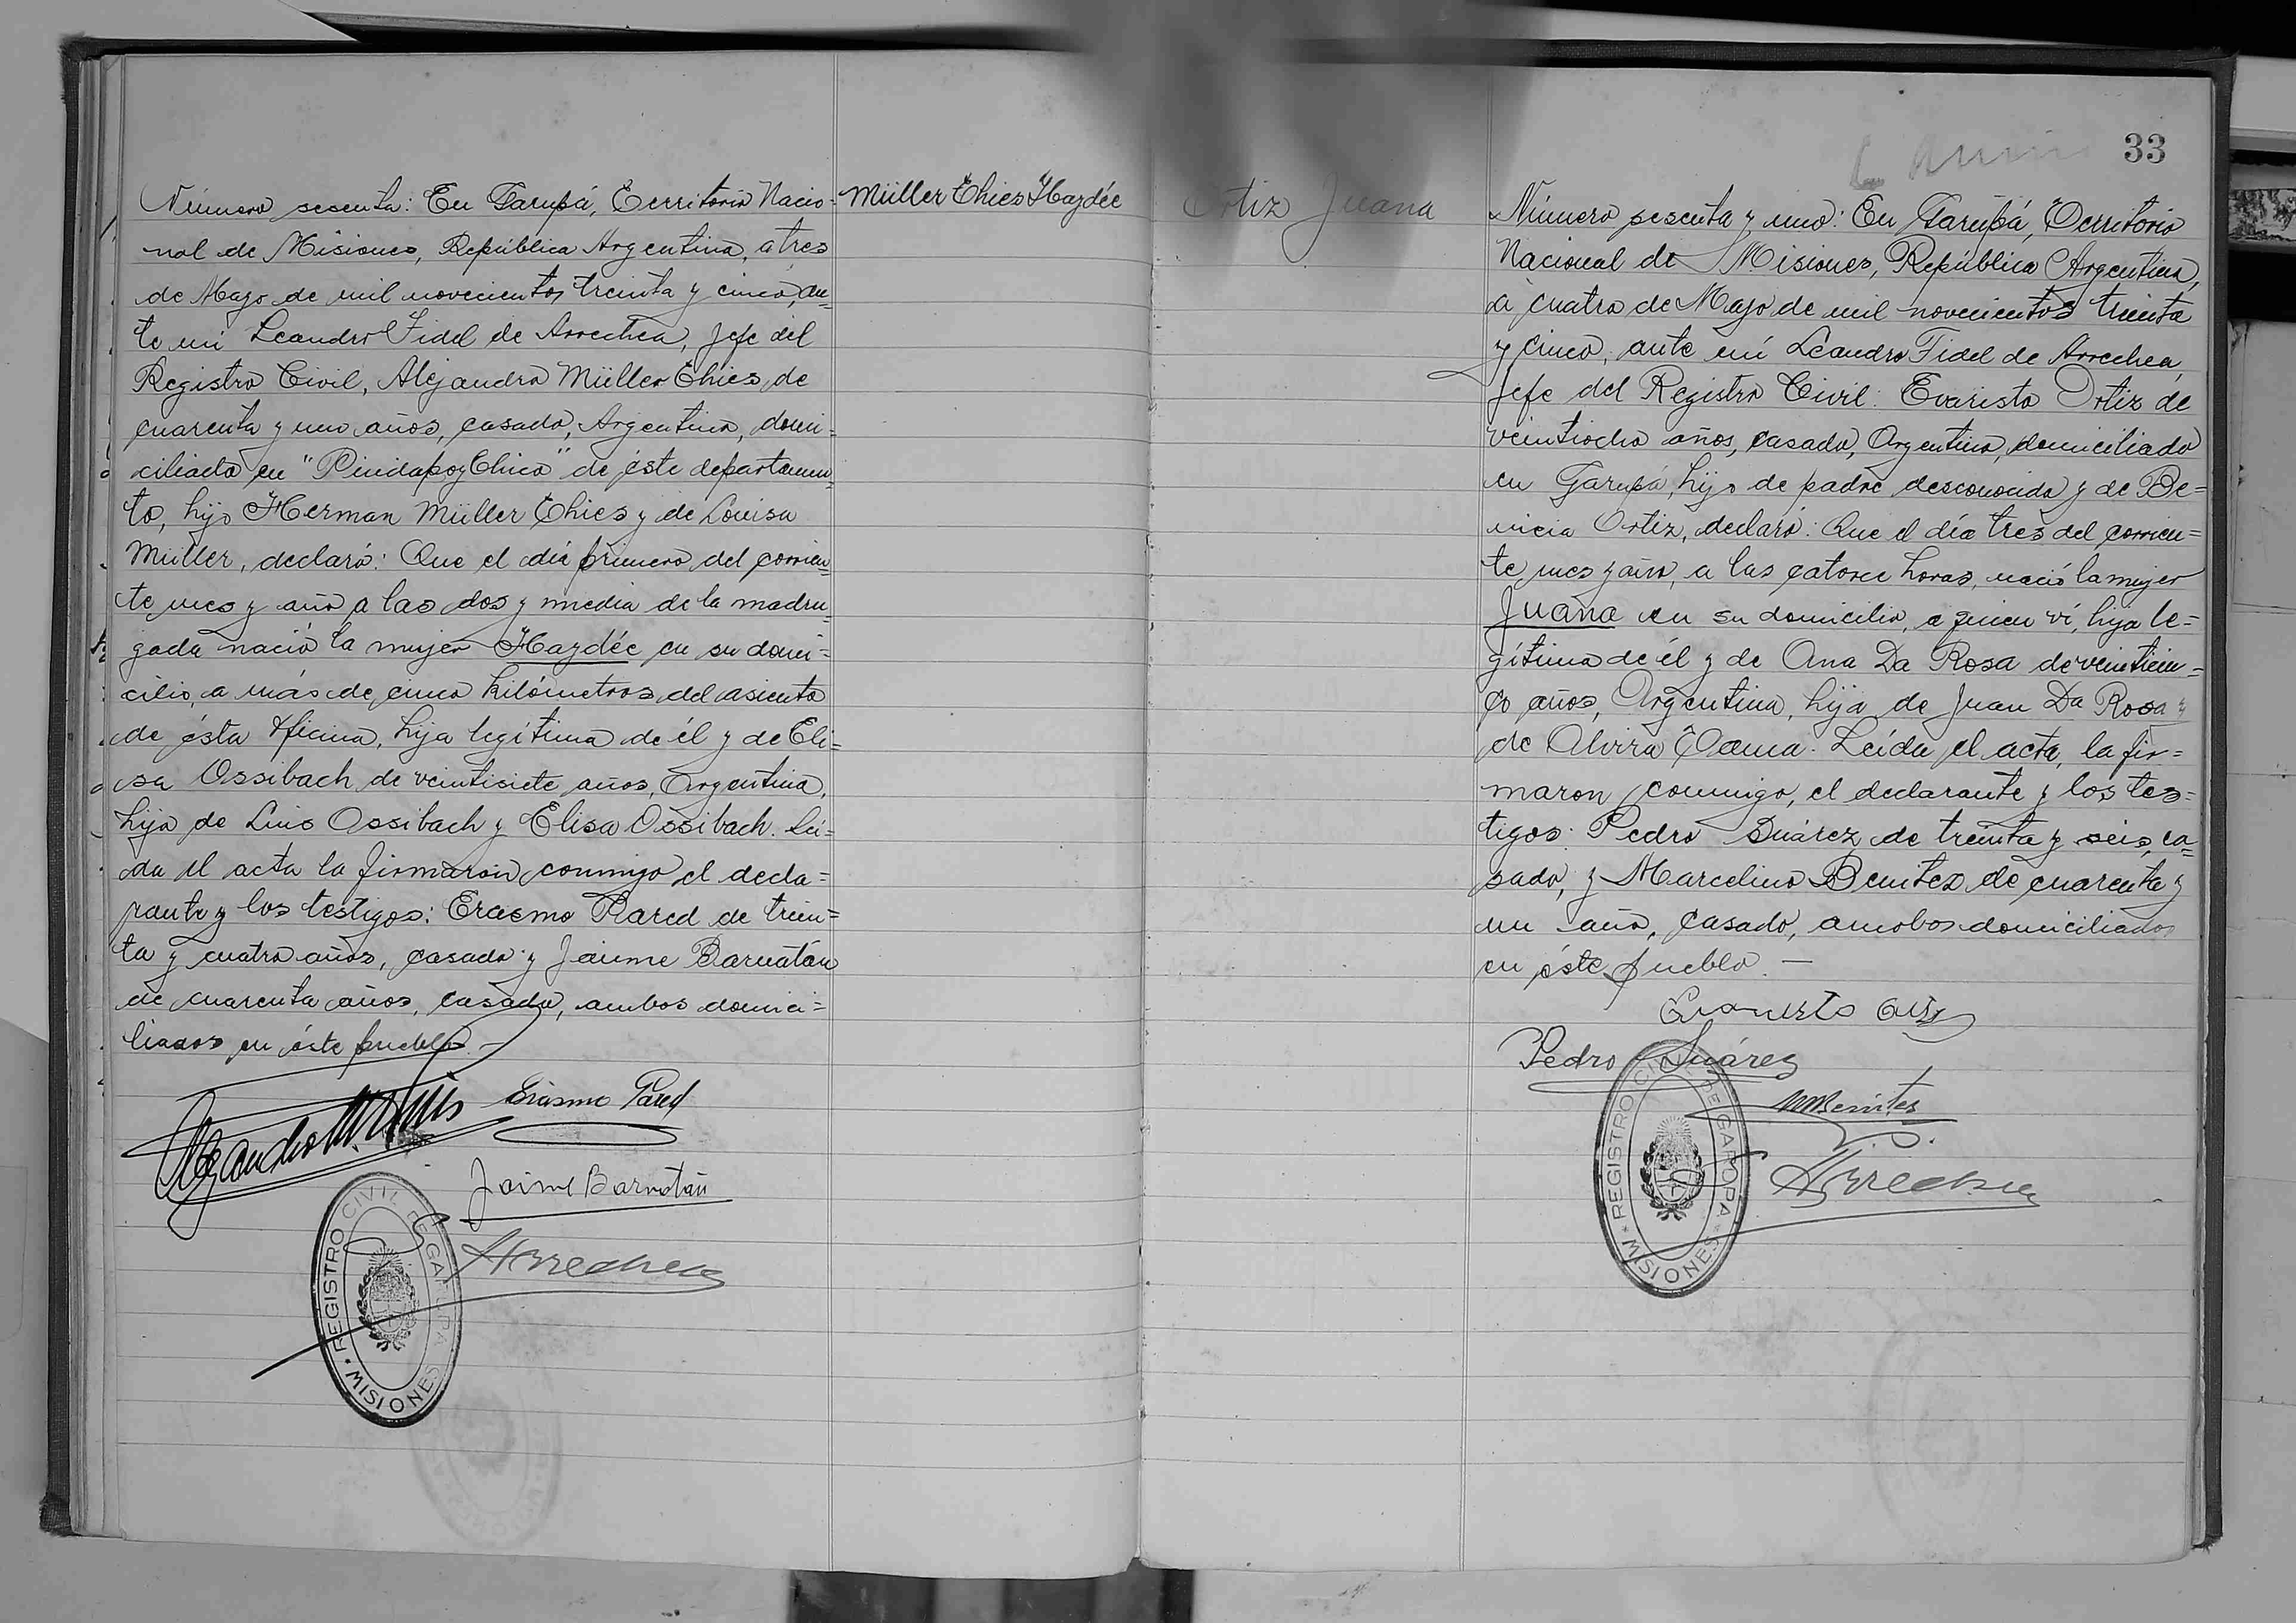 Número sesenta: En Garupá, Territorio Nacio-
nal de Misiones, República Argentina, a tres
de Mayo de mil novecientos treinta y cinco, an=
te mi Leandro Fidel de Arrechea, Jefe del
Registro Civil, Alejandro Müller Thies, de
cuarenta y uno años, casado, Argentino, domi=
ciliado en "Pindapoy Chico" de éste departamen=
to, hijo Herman Müller Thies y de Louisa
Müller, declaró: Que el día primero del corrien=
te mes y año, a las dos y media de la madru=
gada nació la mujer Haydée en su domi=
cilio, a más de cinco kilómetros del asiento
de ésta Oficina, hija legítima de él y de Eli=
sa Ossibach de veintisiete años, Argentina,
hija de Luis Ossibach y Elisa Ossibach. Leí=
da el acta la firmaron conmigo el decla=
rante y los testigos: Erasmo Pared de trein=
ta y cuatro años, casado y Jaime Barnatán
de cuarenta años, casado, ambos domici=
liados en éste pueblo.—
Erasmo Pared
Jaime Barnatán
Arrechea
REGISTRO CIVIL DE GARUPA
MISIONES
Müller Thies Haydée
Ortiz Juana
33
Número sesenta y uno: En Garupá, Territorio
Nacional de Misiones, República Argentina,
a cuatro de Mayo de mil novecientos treinta
y cinco, ante mí Leandro Fidel de Arrechea,
Jefe del Registro Civil: Evaristo Ortiz de
veintiocho años, casado, Argentino, domiciliado
en Garupá, hijo de padre desconocido y de Be=
nicia Ortiz, declaró: Que el día tres del corrien=
te mes y año, a las catorce horas, nació la mujer
Juana en su domicilio, a quien ví, hija le=
gítima de él y de Ana Da Rosa de veinticin=
co años, Argentina, hija de Juan Da Rosa y
de Alvira. Leída el acta, la fir=
maron conmigo, el declarante y los tes=
tigos: Pedro Suárez de treinta y seis, ca=
sado, y Marcelino Benitez de cuarenta y
un año, casado, ambos domiciliados
en éste pueblo.—
Evaristo Ortiz
Pedro Suárez
M Benites
Arrechea
REGISTRO CIVIL DE GARUPA
MISIONES